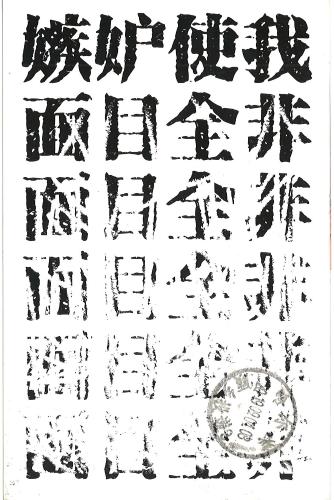 嫉妒使我
面目全非
面目全非
面目全非
面目全非
面目全非